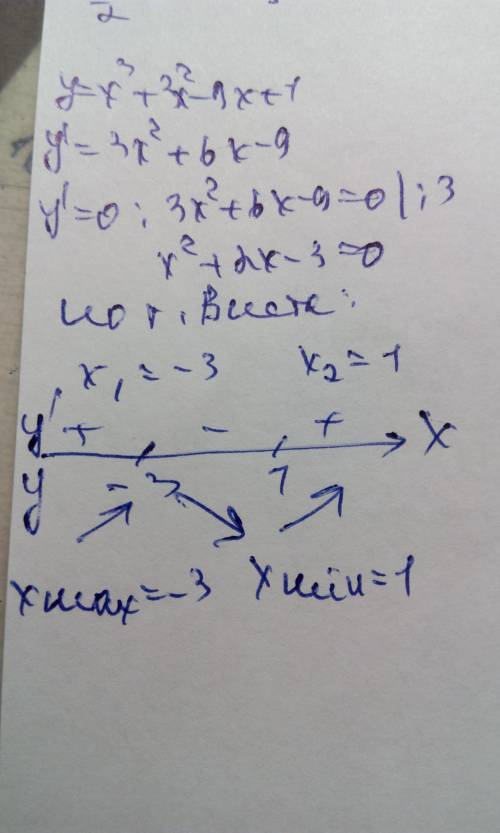 2
y=x³+3x²-9x+1
y'=3x²+6x-9
y'=0; 3x²+6x-9=0 |:3
x²+2x-3=0
по т. Виета:
x₁=-3 x₂=1
y' + - + x
y -3 1
xmax=-3 xmin=1